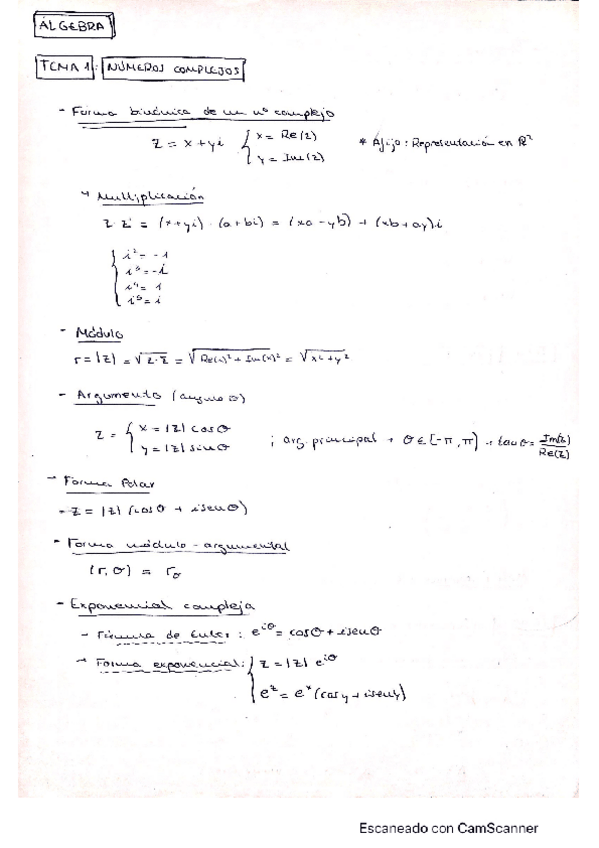 ÁLGEBRA
TEMA 1: NÚMEROS COMPLEJOS
- Forma binómica de un nº complejo
z = x + yi { x = Re(z) * Afijo: Representación en R²
y = Im(z)
↳ Multiplicación
z · z' = (x+yi) · (a+bi) = (xa - yb) + (xb + ay)i
{ i² = -1
i³ = -i
i⁴ = 1
i⁵ = i
- Módulo
r = |z| = √z·z̄ = √Re(x)² + Im(x)² = √x² + y²
- Argumento (ángulo θ)
z = { x = |z| cosθ ; arg. principal → θ ∈ [-π, π] → tanθ = Im(z)/Re(z)
y = |z| sinθ
- Forma Polar
- z = |z| (cosθ + isenθ)
- Forma módulo-argumental
(r, θ) = r_θ
- Exponencial compleja
- Fórmula de Euler: e^{iθ} = cosθ + isenθ
→ Forma exponencial: { z = |z| e^{iθ}
e^z = e^x (cosy + iseny)
Escaneado con CamScanner